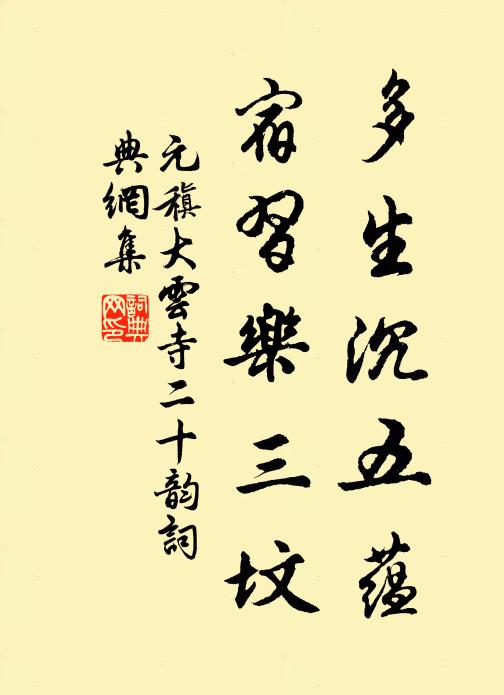 多生沉五蕴
宿習樂三坟
元稹大雲寺二十韵詞
典網集
詞典网印